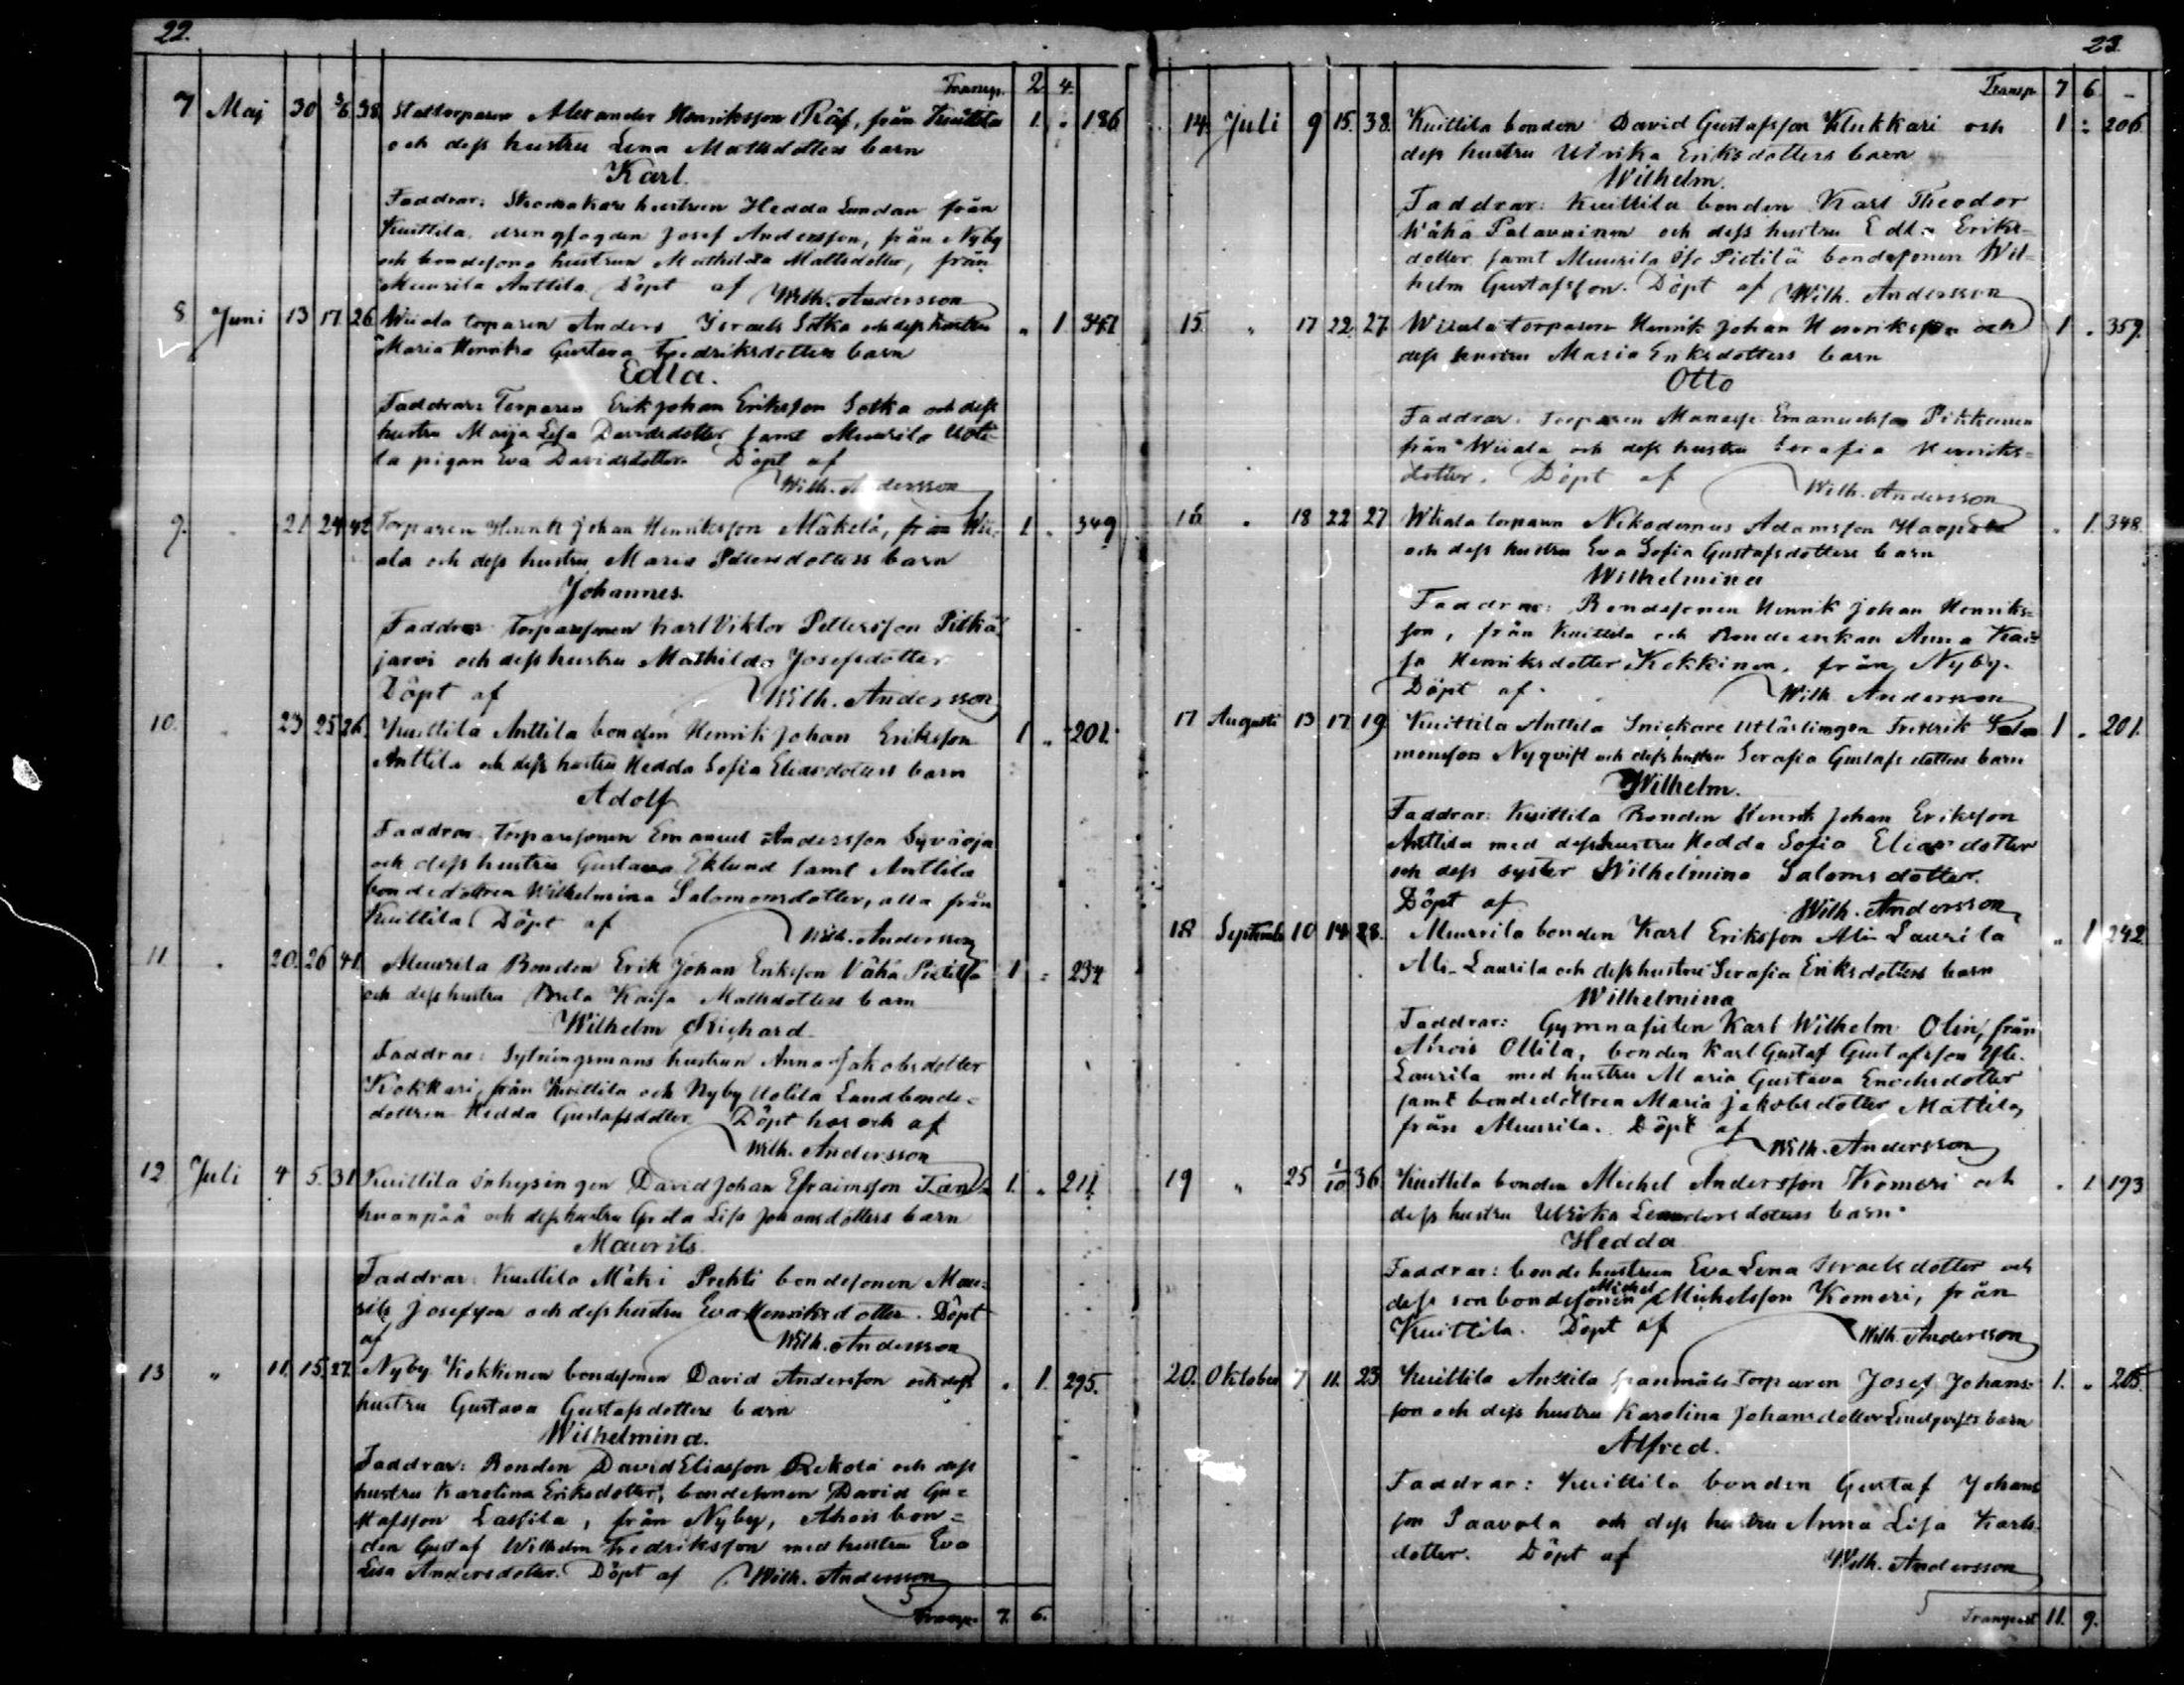 22.
Transp. 2. 4.
7 Maj 30 3/6 38. Stattorparen Alexander Henriksson Räf, från Kuittila 1. " 186.
och dess hustru Lena Mattsdotters barn
Karl.
Faddrar: Skomakare hustrun Hedda Lundan från
Kuittila, drengfogden Josef Andersson, från Nyby
och bondesons hustrun Mathilda Mattsdotter, från
Muurila Anttila. Döpt af Wilh. Andersson
8. Juni 13 17 26. Wiiala torparen Anders Israels Sotka och dess hustru " 1. 347.
Maria Henrika Gustava Fredriksdotters barn
Edla.
Faddrar: Torparen Erik Johan Eriksson Sotka och dess
hustru Maija Lisa Davidsdotter samt Muurila Uoti-
la pigan Eva Davidsdotter. Döpt af
Wilh. Andersson
9. " 21 24 42 Torparen Henrik Johan Henriksson Mäkelä, från Wii- 1. " 349
ala och dess hustru Maria Pettersdotters barn
Johannes.
Faddrar: Torparesonen Karl Viktor Pettersson Pitkä-
jarvi och dess hustru Mathilda Josefsdotter
Döpt af Wilh. Andersson
10. " 23 25 26. Kuittila Anttila bonden Henrik Johan Eriksson 1 " 201.
Anttila och dess hustru Hedda Sofia Eliasdotters barn
Adolf
Faddrar: Torparesonen Emanuel Andersson Syväoja
och dess hustru Gustava Eklund samt Anttila
bondedottren Wilhelmina Salomonsdotter, alla från
Kuittila. Döpt af
Wilh. Andersson
11. " 20. 26 41. Muurila Bonden Erik Johan Eriksson Vähä Pietilä 1 = 234
och dess hustru Brita Kaisa Mattsdotters barn
Wilhelm Richard.
Faddrar: Sytningsmans hustrun Anna Jakobsdotter
Kokkari, från Kuittila och Nyby Uotila Landbonde-
dottren Hedda Gustafsdotter. Döpt hos och af
Wilh. Andersson
12. Juli 4 5. 31 Kuittila inhysingen David Johan Efraimsson Tan- 1. " 211.
huanpää och dess hustru Greta Lisa Johansdotters barn
Maurits.
Faddrar: Kuittila Mäki Prehti bondesonen Mau-
rits Josefsson och dess hustru Eva Henriksdotter. Döpt
af Wilh. Andersson
13 " 11. 15. 27. Nyby Kokkinen bondesonen David Andersson och dess " 1. 295.
hustru Gustava Gustafsdotters barn
Wilhelmina.
Faddrar: Bonden David Eliasson Rekola och dess
hustru Karolina Eriksdotter, bondesonen David Gu-
stafsson Lassila, från Nyby, Ahois bon-
den Gustaf Wilhelm Fredriksson med hustru Eva
Lisa Andersdotter. Döpt af Wilh. Andersson
Transp. 7. 6.
23.
Transp. 7 6. –
14. Juli 9 15. 38. Kuittila bonden David Gustafsson Klukkari och 1 " 206.
dess hustru Ulrika Eriksdotters barn
Wilhelm.
Faddrar: Kuittila bonden Karl Theodor
Wähä Palavainen och dess hustru Edla Eriks-
dotter samt Muurila Iso Pietilä bondesonen Wil-
helm Gustafsson. Döpt af Wilh. Andersson
15. " 17 22. 27. Wiiala torparen Henrik Johan Henriksson och 1 " 359.
dess hustru Maria Eriksdotters barn
Otto
Faddrar: Torparen Manasse Emanuelsson Pikkanen
från Wiiala och dess hustru Serafia Henriks-
dotter. Döpt af Wilh. Andersson
16. " 18 22 27 Wiiala torparen Nikodemus Adamsson Haapala " 1. 348.
och dess hustru Eva Sofia Gustafsdotters barn
Wilhelmina
Faddrar: Bondesonen Henrik Johan Henriks-
son, från Kuittila och Bondeenkan Anna Kai-
sa Henriksdotter Kokkinen, från Nyby.
Döpt af Wilh. Andersson
17 Augusti 13 17 19. Kuittila Anttila Snickare utlärlingen Fredrik Salo- 1 " 201.
monsson Nyqvist och dess hustru Serafia Gustafsdotters barn
Wilhelm.
Faddrar: Kuittila Bonden Henrik Johan Eriksson
Anttila med dess hustru Hedda Sofia Eliasdotter
och dess syster Wilhelmina Salomsdotter.
Döpt af Wilh. Andersson
18 September 10 14 28. Muurila bonden Karl Eriksson Ali Laurila " 1 242.
Ali-Laurila och dess hustru Serafia Eriksdotters barn
Wilhelmina
Faddrar: Gymnasisten Karl Wilhelm Olin, från
Ahois Ollila, bonden Karl Gustaf Gustafsson Yli-
Laurila med hustru Maria Gustava Enochsdotter
samt bondedottren Maria Jakobsdotter Mattila,
från Muurila. Döpt af
Wilh. Andersson
19 " 25 1/10 36 Kuittila bonden Michel Andersson Komeri och " 1 193
dess hustru Ulrika barn.
Hedda
Faddrar: bonde hustrun Eva Lena Israelsdotter och
dess son bondesonen Michel Michelsson Komeri, från
Kuittila. Döpt af Wilh. Andersson
20. Oktober 7 11. 23 Kuittila Anttila Spanmåls torparen Josef Johans- 1. " 205.
son och dess hustru Karolina Johansdotter Lindqvists barn
Alfred.
Faddrar: Kuittila bonden Gustaf Johans
son Paavola och dess hustru Anna Lisa Karls-
dotter. Döpt af Wilh. Andersson
Transport 11. 9.